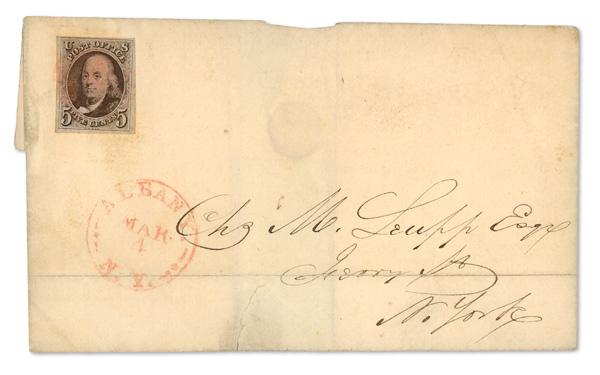 U S
POST OFFICE
5 FIVE CENTS 5
ALBANY
MAR
1
N.Y.
Chs M. Leupp Esqr
Ferry St
N. York